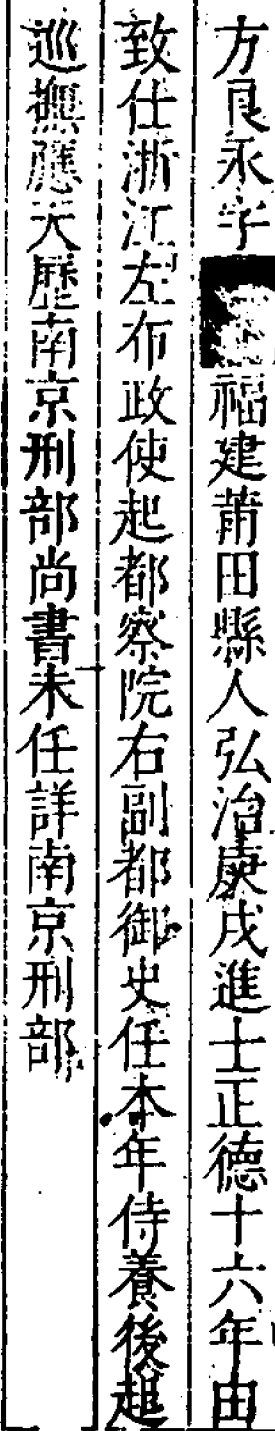 方良永字福建莆田縣人弘治庚戌進士正德十六年由
致仕浙江左布政使起都察院右副都御史任本年侍養後起
巡撫應天歷南京刑部尚書未任詳南京刑部